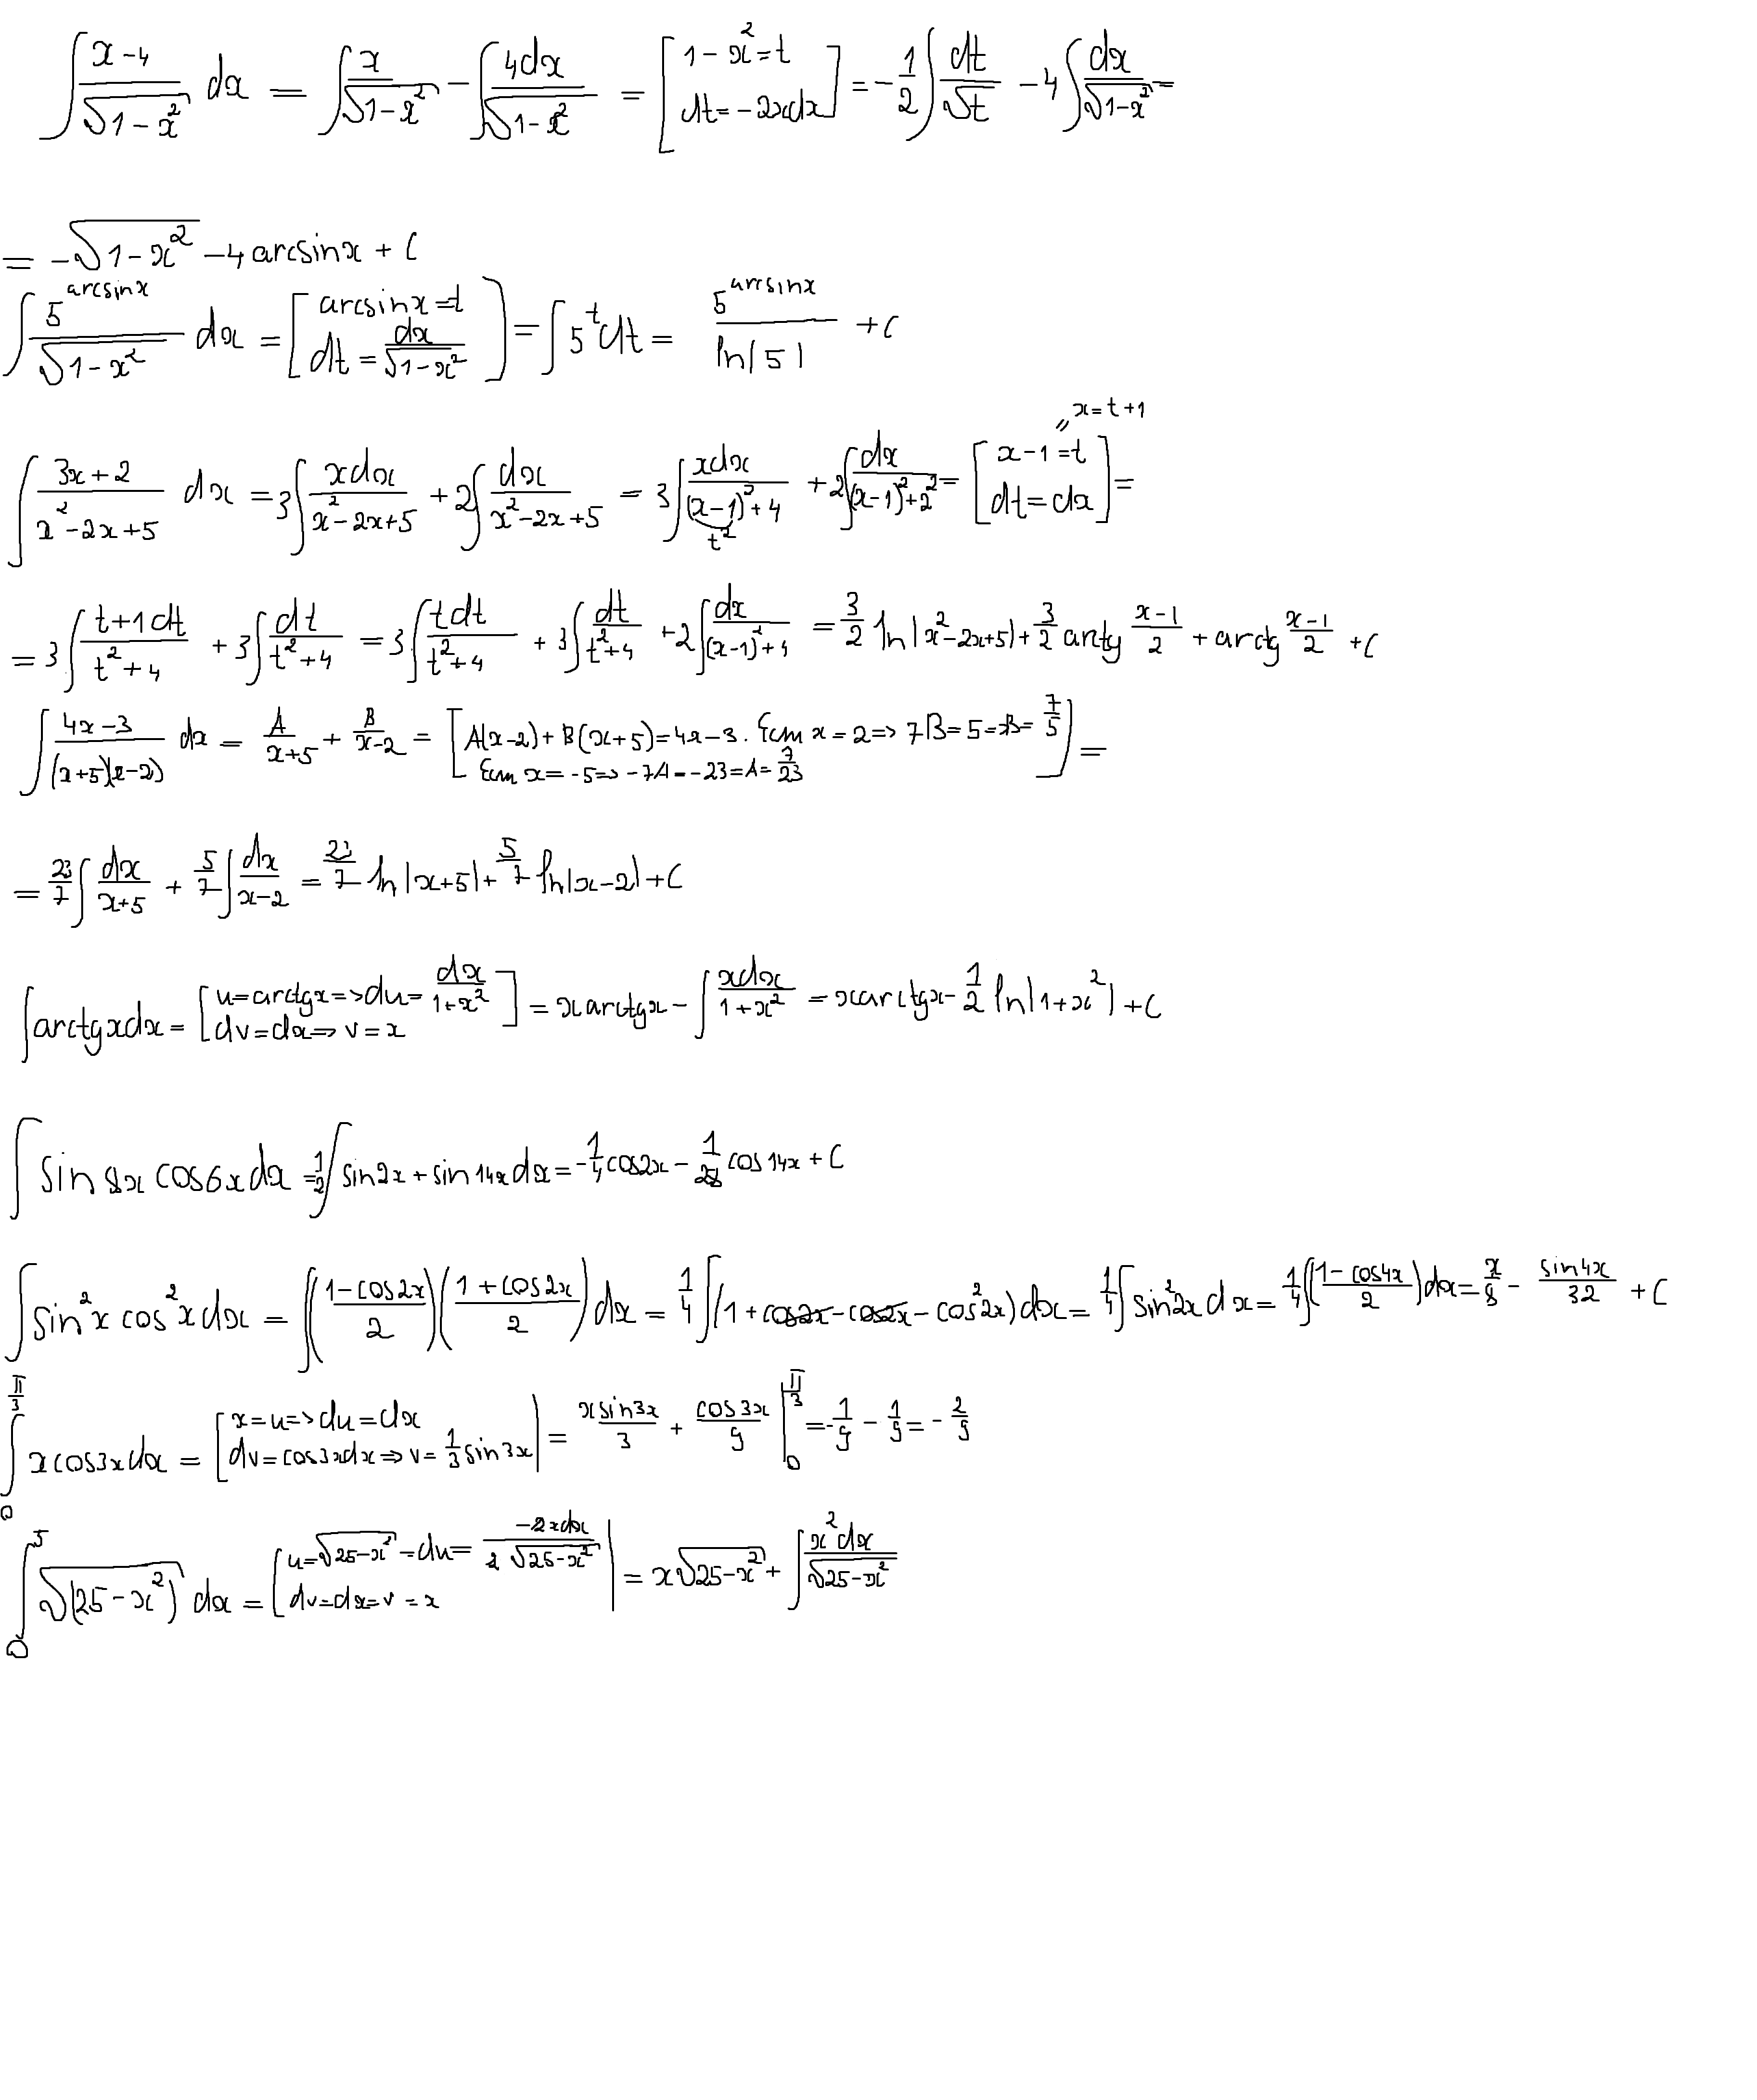 ∫ (x-4)/√(1-x²) dx = ∫ x/√(1-x²) - ∫ 4dx/√(1-x²) = [1-x²=t; dt=-2xdx] = -1/2 ∫ dt/√t - 4∫ dx/√(1-x²) =
= -√(1-x²) - 4 arcsinx + C
∫ 5^(arcsinx)/√(1-x²) dx = [arcsinx=t; dt = dx/√(1-x²)] = ∫ 5^t dt = 5^(arcsinx)/ln|5| + C
∫ (3x+2)/(x²-2x+5) dx = 3∫ xdx/(x²-2x+5) + 2∫ dx/(x²-2x+5) = 3∫ xdx/((x-1)²+4) + 2∫ dx/((x-1)²+2²) = [x-1=t; dt=dx] = x=t+1 t²
= 3∫ (t+1dt)/(t²+4) + 3∫ dt/(t²+4) = 3∫ tdt/(t²+4) + 3∫ dt/(t²+4) + 2∫ dx/((x-1)²+4) = 3/2 ln|x²-2x+5| + 3/2 arctg (x-1)/2 + arctg (x-1)/2 + C
∫ (4x-3)/((x+5)(x-2)) dx = A/(x+5) + B/(x-2) = [A(x-2)+B(x+5)=4x-3. Если x=2=> 7B=5=>B= 7/5
Если x=-5=> -7A=-23=A= 7/23] =
= 23/7 ∫ dx/(x+5) + 5/7 ∫ dx/(x-2) = 23/7 ln|x+5| + 5/7 ln|x-2| + C
∫ arctgxdx = [u=arctgx=>du= dx/(1+x²); dv=dx=>v=x] = xarctgx - ∫ xdx/(1+x²) = xarctgx - 1/2 ln|1+x²| + C
∫ sin8x cos6xdx = 1/2 ∫ sin2x + sin14xdx = -1/4 cos2x - 1/28 cos14x + C
∫ sin²x cos²xdx = ∫((1-cos2x)/2)((1+cos2x)/2) dx = 1/4 ∫(1+cos2x-cos2x-cos²2x)dx = 1/4 ∫ sin²2xdx = 1/4 ∫((1-cos4x)/2)dx = x/8 - sin4x/32 + C
∫₀^(π/3) xcos3xdx = [x=u=>du=dx; dv=cos3xdx=>v= 1/3 sin3x| = xsin3x/3 + cos3x/9 |₀^(π/3) = -1/9 - 1/9 = -2/9
∫₀^5 √(25-x²) dx = [u=√(25-x²) = du= -2xdx/(2√(25-x²)); dv=dx=v=x| = x√(25-x²) + ∫ x²dx/√(25-x²)